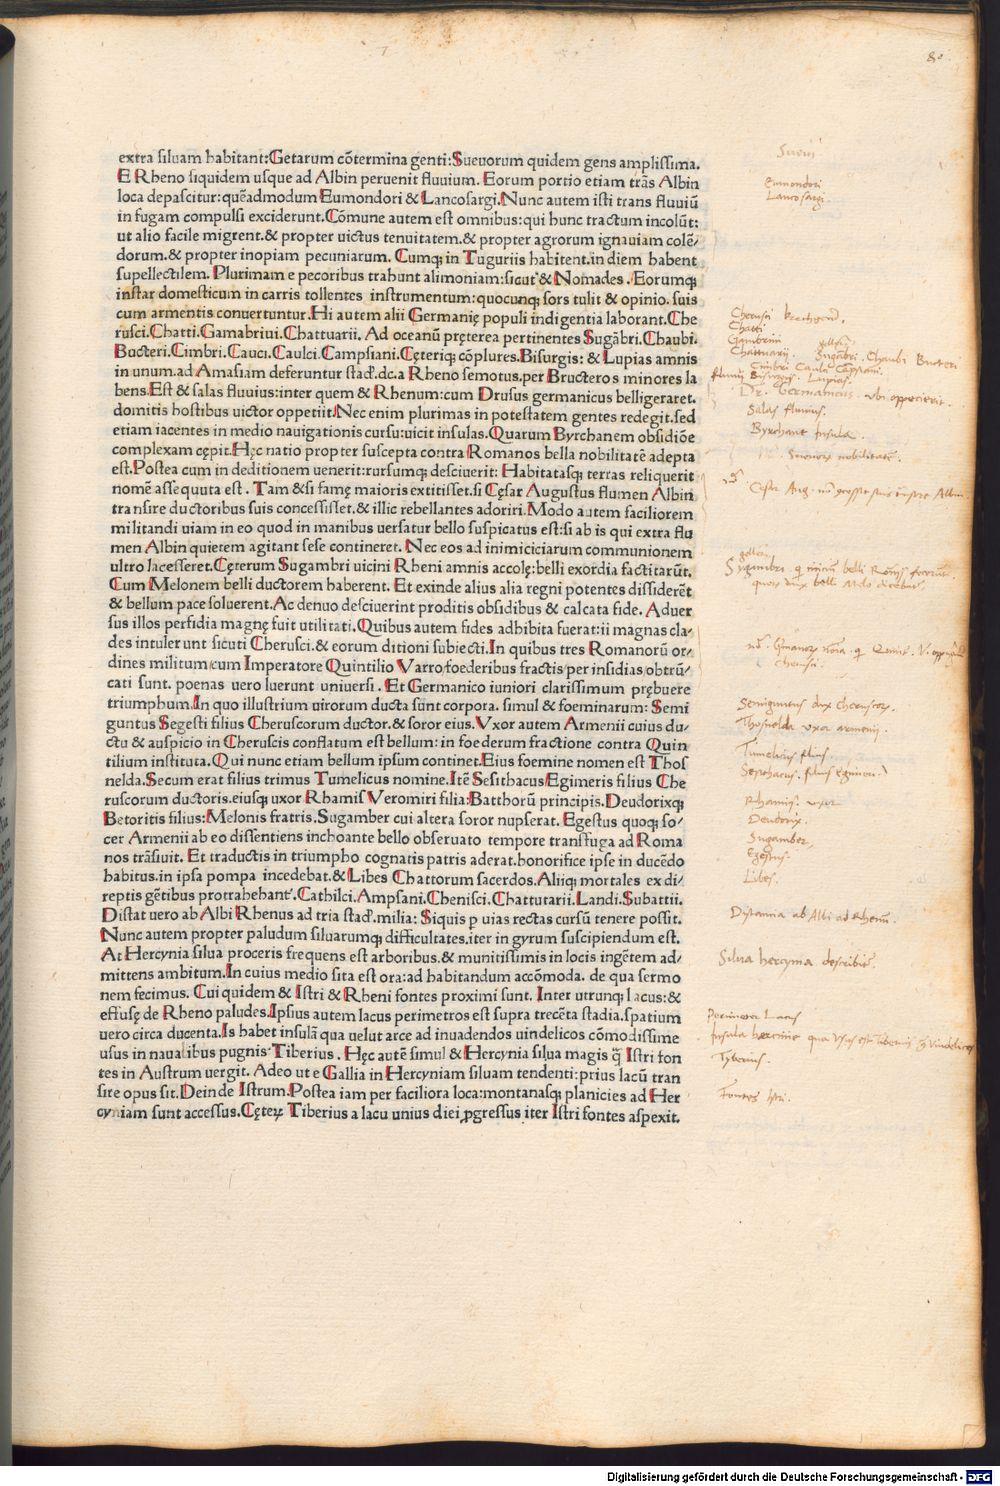 80
extra siluam habitant:Getarum cõtermina genti:Sueuorum quidem gens amplissima.
E Rheno siquidem usque ad Albin peruenit fluuium. Eorum portio etiam trãs Albin
loca depascitur:quẽadmodum Eumondori & Lancosargi.Nunc autem isti trans fluuiũ
in fugam compulsi exciderunt.Cõmune autem est omnibus:qui hunc tractum incolũt:
ut alio facile migrent.& propter uictus tenuitatem.& propter agrorum ignauiam colẽ/
dorum.& propter inopiam pecuniarum. Cumq; in Tuguriis habitent.in diem habent
supellectilem. Plurimam e pecoribus trahunt alimoniam:sicut & Nomades . Eorumq;
instar domesticum in carris tollentes instrumentum:quocunq; sors tulit & opinio. suis
cum armentis conuertuntur.Hi autem alii Germanię populi indigentia laborant.Che
rusci.Chatti.Gamabriui.Chattuarii. Ad oceanũ pręterea pertinentes Sugãbri.Chaubi.
Bucteri.Cimbri.Cauci.Caulci.Campsiani.Cęteriq; cõplures.Bisurgis: & Lupias amnis
in unum.ad Amasiam deferuntur stad̃.dc.a Rheno semotus.per Bructeros minores la
bens.Est & salas fluuius:inter quem & Rhenum:cum Drusus germanicus belligeraret.
domitis hostibus uictor oppetiit.Nec enim plurimas in potestatem gentes redegit.sed
etiam iacentes in medio nauigationis cursu:uicit insulas.Quarum Byrchanem obsidiõe
complexam cępit.Hęc natio propter suscepta contra Romanos bella nobilitatẽ adepta
est.Postea cum in deditionem uenerit:rursumq; desciuerit: Habitatasq; terras reliquerit
nomẽ assequuta est . Tam & si famę maioris extitisset.si Cęsar Augustus flumen Albin
transire ductoribus suis concessisset.& illic rebellantes adoriri.Modo autem faciliorem
militandi uiam in eo quod in manibus uersatur bello suspicatus est:si ab is qui extra flu
men Albin quietem agitant sese contineret. Nec eos ad inimiciciarum communionem
ultro lacesseret.Cęterum Sugambri uicini Rheni amnis accolę:belli exordia factitarũt.
Cum Melonem belli ductorem haberent. Et exinde alius alia regni potentes dissiderẽt
& bellum pace soluerent.Ac denuo desciuerint proditis obsidibus & calcata fide. Aduer
sus illos perfidia magnę fuit utilitati.Quibus autem fides adhibita fuerat:ii magnas cla/
des intulerunt sicuti Cherusci.& eorum ditioni subiecti.In quibus tres Romanorũ or/
dines militum cum Imperatore Quintilio Varro foederibus fractis per insidias obtrũ/
cati sunt. poenas uero luerunt uniuersi . Et Germanico iuniori clarissimum prębuere
triumphum.In quo illustrium uirorum ducta sunt corpora. simul & foeminarum: Semi
guntus Segesti filius Cheruscorum ductor.& soror eius. Vxor autem Armenii cuius du/
ctu & auspicio in Cheruscis conflatum est bellum: in foederum fractione contra Quin
tilium instituta.Qui nunc etiam bellum ipsum continet.Eius foemine nomen est Thos
nelda.Secum erat filius trimus Tumelicus nomine.Itẽ Sesithacus Egimeris filius Che
ruscorum ductoris.eiusq; uxor Rhamis Veromiri filia:Batthorũ principis. Deudorixq;
Betoritis filius:Melonis fratris.Sugamber cui altera soror nupserat. Egestus quoq; so/
cer Armenii ab eo dissentiens inchoante bello obseruato tempore transfuga ad Roma
nos trãsiuit. Et traductis in triumpho cognatis patris aderat.honorifice ipse in ducẽdo
habitus.in ipsa pompa incedebat.& Libes Chattorum sacerdos.Aliiq; mortales ex di/
reptis gẽtibus protrahebant̃.Cathilci.Ampsani.Chenisci.Chattutarii.Landi.Subattii.
Distat uero ab Albi Rhenus ad tria stad̃.milia: Siquis ꝑ uias rectas cursũ tenere possit.
Nunc autem propter paludum siluarumq; difficultates.iter in gyrum suscipiendum est.
At Hercynia silua proceris frequens est arboribus.& munitissimis in locis ingẽtem ad/
mittens ambitum.In cuius medio sita est ora:ad habitandum accõmoda. de qua sermo
nem fecimus. Cui quidem & Istri & Rheni fontes proximi sunt. Inter utrunq; lacus:&
effusę de Rheno paludes.Ipsius autem lacus perimetros est supra trecẽta stadia.spatium
uero circa ducenta.Is habet insulã qua uelut arce ad inuadendos uindelicos cõmodissime
usus in naualibus pugnis Tiberius . Hęc autẽ simul & Hercynia silua magis q̃ Istri fon
tes in Austrum uergit. Adeo ut e Gallia in Hercyniam siluam tendenti:prius lacũ tran
sire opus sit. Deinde Istrum.Postea iam per faciliora loca:montanasq; planicies ad Her
cyniam sunt accessus.Cęteꝝ Tiberius a lacu unius diei ꝓgressus iter Istri fontes aspexit.
Sueui
Eumondori
Lancosargi.
Cherusci
Chatti
Gambriuii
Chattuarii. Sugãbri. Chaubi Bucteri
Cimbri Cauci Caulci Campsiani.
fluuii Bisurgis. Lupias.
Dr. Germanicus. ubi oppetierit.
Salas fluuius.
Byrchant Insula.
Sueuorꝝ nobilitatẽ.
Cesar Aug.
Cherusci.
Semiguntus dux cheruscorꝝ.
Thosnelda uxor armenii.
Tumelicus filius.
Rhamis uxor
Deudorix.
Sugamber.
Egestus.
Libes.
Distantia ab Albi ad Rhenũ.
Silua hercynia describit̃.
Perimeter Lacus
Insula hercinie qua usus est Tiberius
Tyberius.
Fontes Istri.
Digitalisierung gefördert durch die Deutsche Forschungsgemeinschaft - DFG